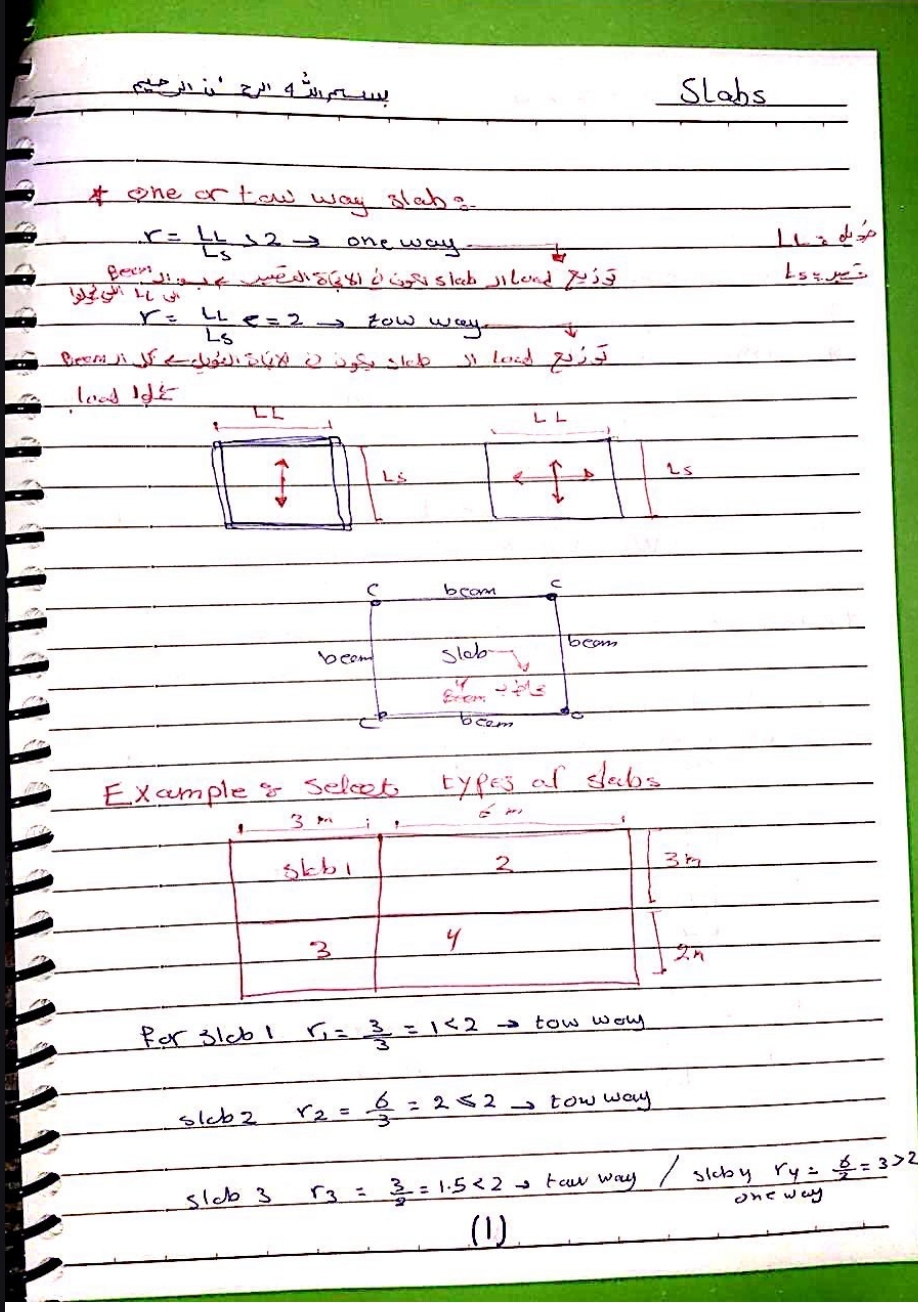 بسم الله الرحمن الرحيم
Slabs
* one or tow way slab:-
r = LL/Ls > 2 → one way
LL : طويل
توزيع load الـ slab يكون في الاتجاه القصير
Beam
Ls : قصير
r = LL/Ls <= 2 → tow way
توزيع load الـ slab يكون في الاتجاه الطويل كل الـ Beam
load
LL LL
Ls Ls
c beam c
beam slab beam
4
Beam
c beam c
Example : Select types of slabs
3 m 6 m
slab 1 2 3m
3 4 2m
for slab 1 r₁ = 3/3 = 1 < 2 → tow way
slab 2 r₂ = 6/3 = 2 ≤ 2 → tow way
slab 3 r₃ = 3/2 = 1.5 < 2 → tow way / slab 4 r₄ = 6/2 = 3 > 2
one way
(1)